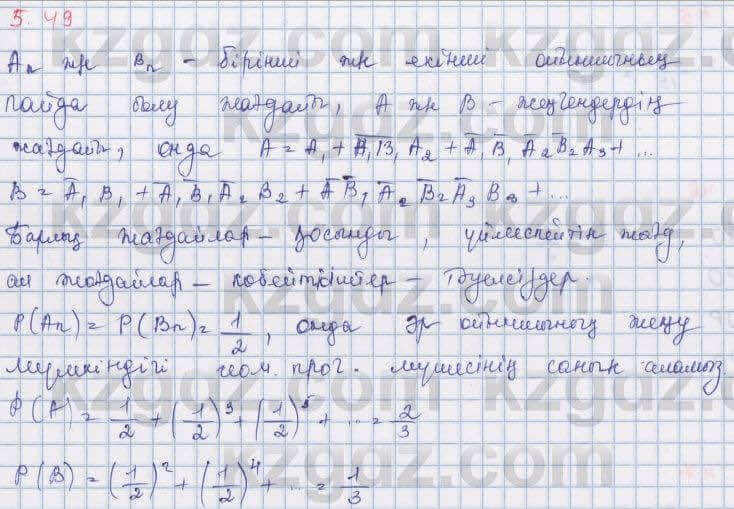 5.49
Aₙ жн Bₙ – бірінші жн екінші ойыншының
пайда болу жағдайы, A жн B – жеңгендердің
жағдайы, онда A = A₁ + A̅₁B̅₁A₂ + A̅₁B̅₁A̅₂B̅₂A₃ + ...
B = A̅₁B₁ + A̅₁B̅₁A̅₂B₂ + A̅B̅₁A̅₂B̅₂A̅₃B₃ + ...
Барлық жағдайлар – қосынды, үйлеспейтін жағд,
ал жағдайлар – көбейткіштер – Тәуелсіздер.
P(Aₙ) = P(Bₙ) = 1/2, онда әр ойыншының жеңу
мүмкіндігі геом. прог. мүшесінің санын аламыз.
P(A) = 1/2 + (1/2)³ + (1/2)⁵ + ... = 2/3
P(B) = (1/2)² + (1/2)⁴ + ... = 1/3
kzgdz.com